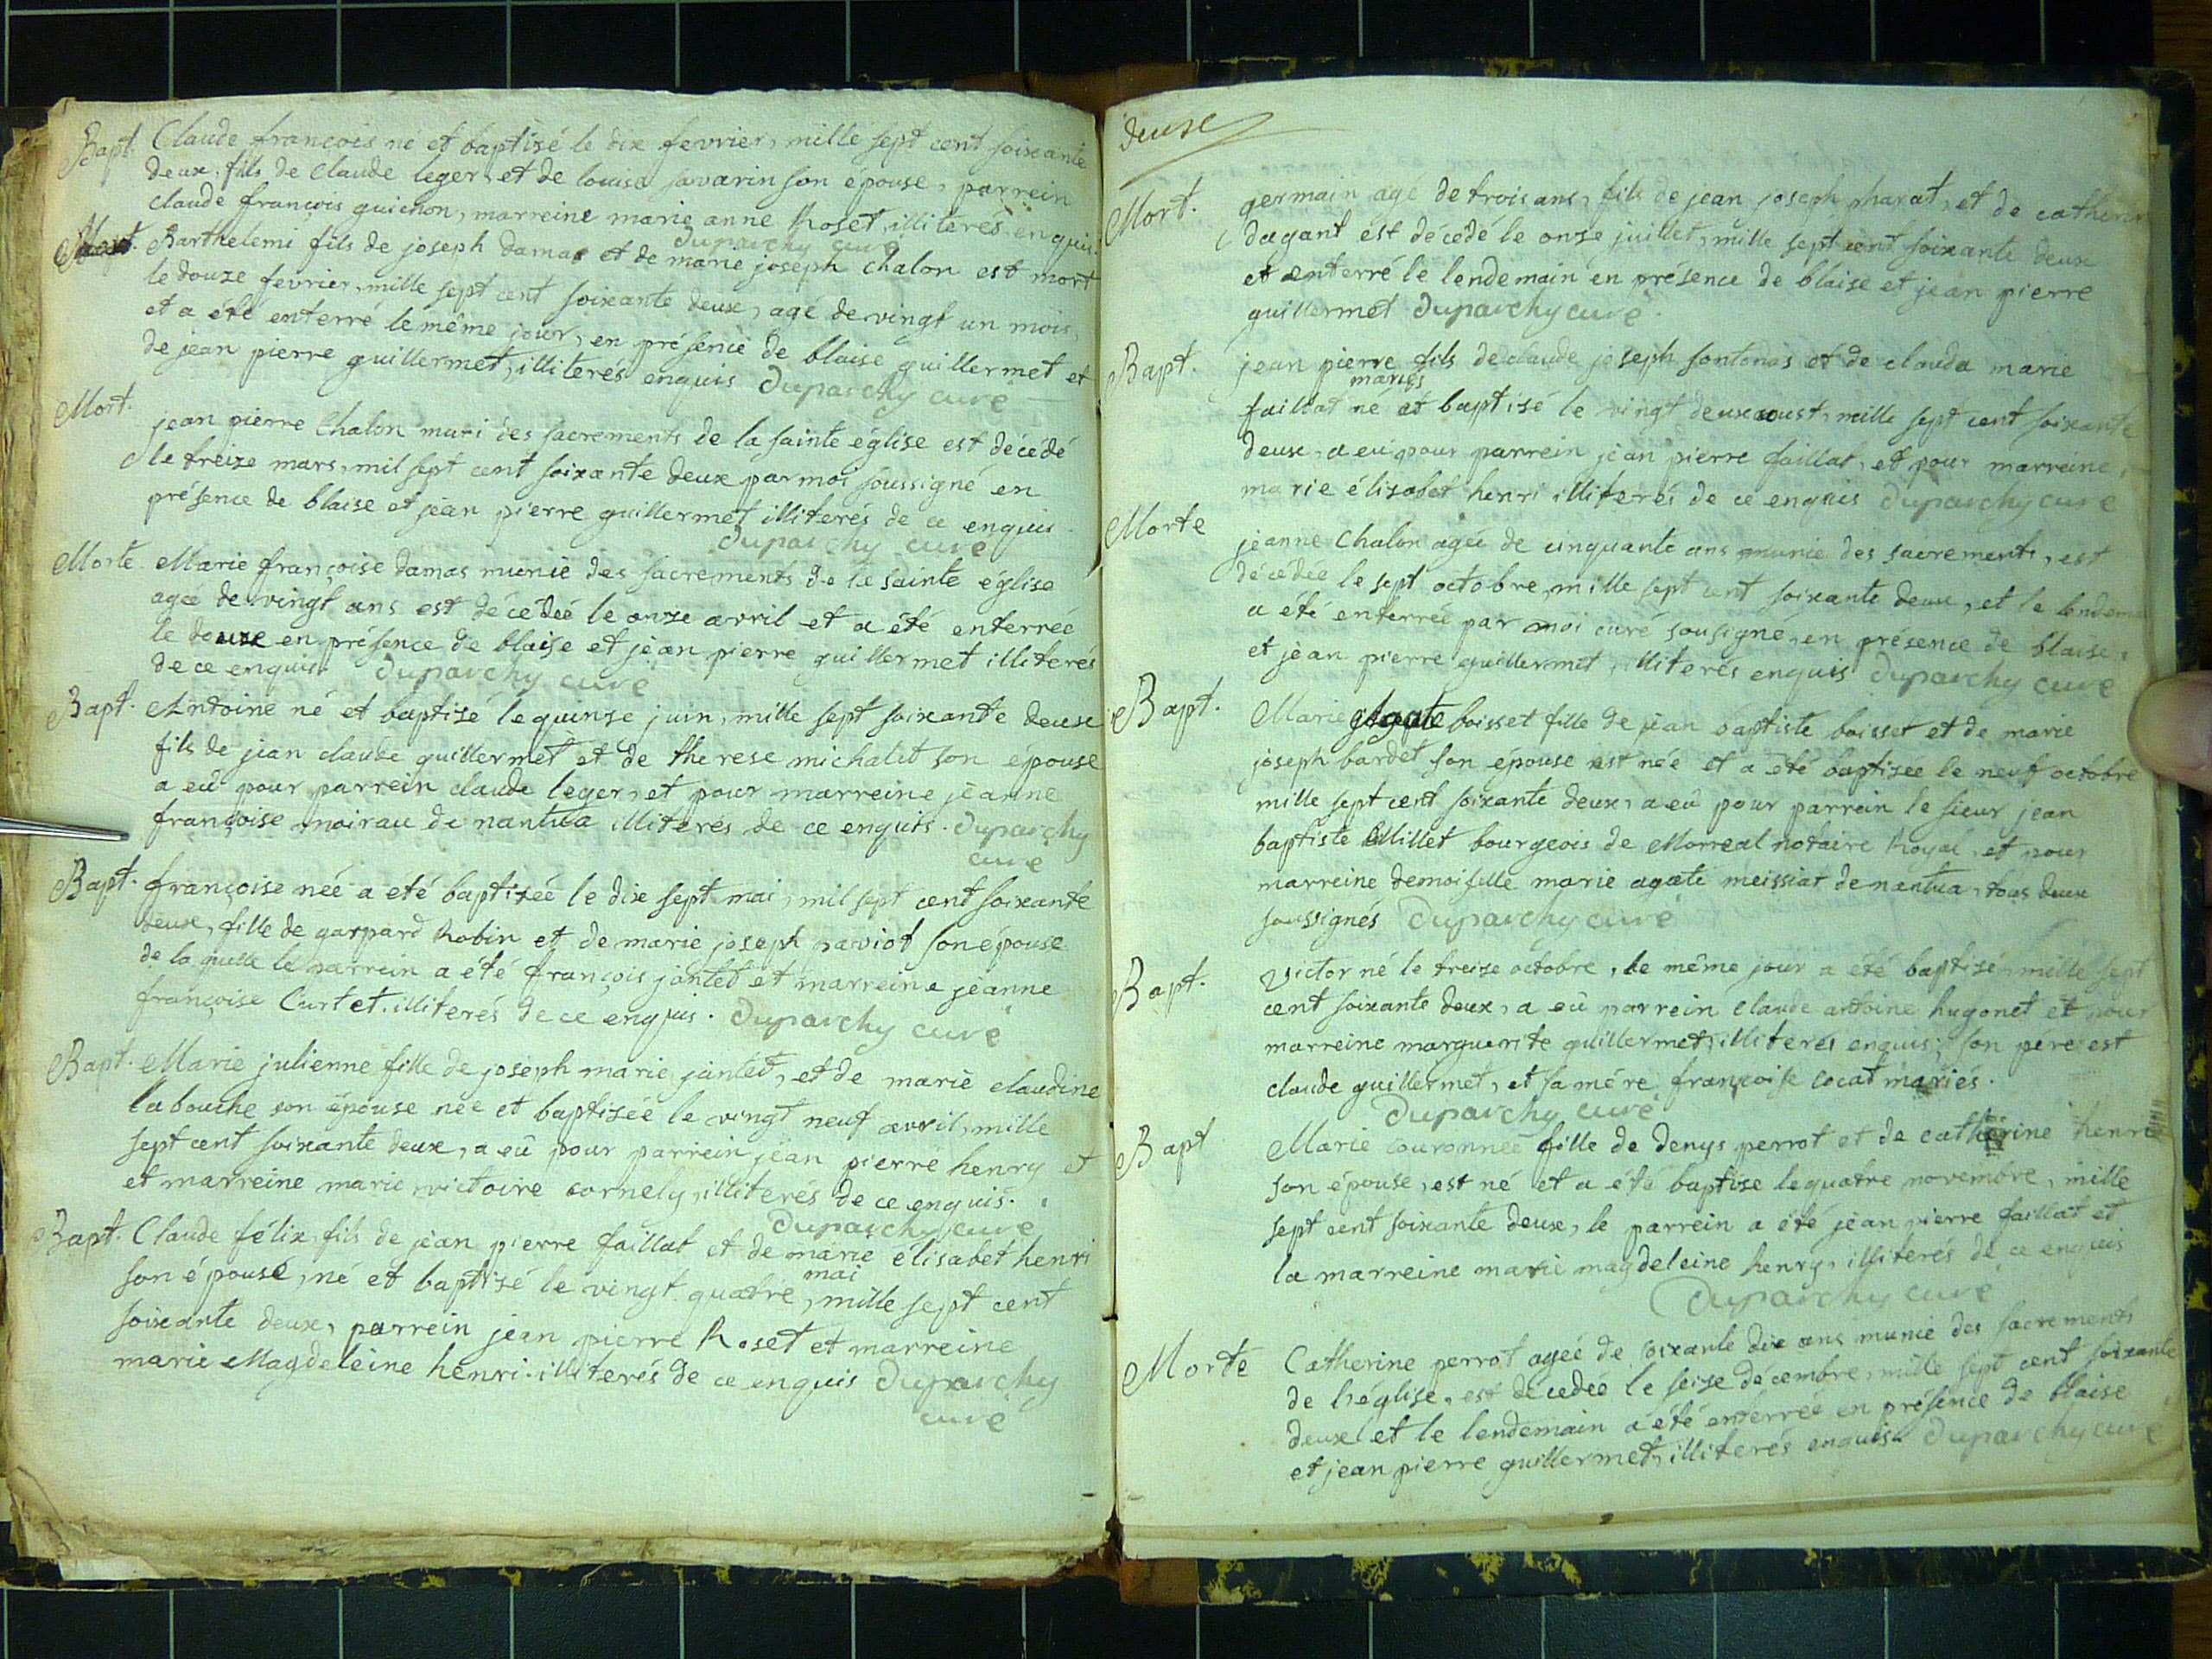 Bapt. Claude françois né et baptisé le dix fevrier, mille sept cent soixante
deux. fils de Claude leger, et de louise savarin son épouse, parrein
claude françois guichon, marreine marie anne Roset, illiterés enquis.
duparchy curé
Mort. Barthelemi fils de joseph damas et de marie joseph chalon est mort
le douze fevrier, mille sept cent soixante deux, agé de vingt un mois,
et a été enterré le même jour, en présence de blaise guillermet et
de jean pierre guillermet, illiterés enquis duparchy curé
Mort. jean pierre Chalon muni des sacrements de la sainte église est décédé
le treize mars, mil sept cent soixante deux par moi soussigné en
présence de blaise et jean pierre guillermet illiterés de ce enquis
duparchy curé
Morte. Marie françoise damas munie des sacrements de le sainte église
agée de vingt ans est décédeé le onze avril et a été enterreé
le douze en présence de blaise et jean pierre guillermet illiterés
de ce enquis duparchy curé
Bapt. Antoine né et baptisé le quinze juin, mille sept soixante deux
fils de jean claude guillermet et de therese michalet son épouse
a eû pour parrein claude leger, et pour marreine jeanne
françoise moirau de nantua illiterés de ce enquis. duparchy
curé
Bapt. françoise née a eté baptizéé le dix sept mai, mil sept cent soixante
deux, fille de gaspard Robin et de marie joseph paviot son épouse
de la quelle le parrein a été françois jantet et marreine jeanne
françoise Curtet. illiterés de ce enquis. duparchy curé
Bapt. Marie julienne fille de joseph marie jantet, et de marie claudine
labouche son épouse née et baptizéé le vingt neuf avril, mille
sept cent soixante deux, a eû pour parrein jean pierre henry et
et marreine marie victoire cornely, illiterés de ce enquis.
duparchy curé
Bapt. Claude félix fils de jean pierre faillat et de marie élisabet henri
mai
son épouse, né et baptisé le vingt quatre, mille sept cent
soixante deux, parrein jean pierre Roset et marreine
marie Magdeleine henri. illiterés de ce enquis duparchy
curé
deuse
Mort. germain agé de trois ans, fils de jean joseph pharat, et de catherin
dagant ést décedé le onze juillet, mille sept cent soixante deux
et enterré le lendemain en présence de blaise et jean pierre
guillermet duparchy curé.
Bapt. jean pierre fils de claude joseph fontanas et de clauda marie
mariés
faillat né et baptisé le vingt deux aoust, mille sept cent soixante
deux, a eû pour parrein jean pierre faillat, et pour marreine,
marie élisabet henri illiterés de ce enquis duparchy curé
Morte jeanne Chalon ageé de cinquante ans munie des sacrements, est
décédée le sept octobre, mille sept cent soixante deux, et le lendema
a été enterreé par moi curé sousigné, en présence de blaise,
et jean pierre guillermet, illiterés enquis duparchy curé
Bapt. Marie agate boisset fille de jean baptiste boisset et de marie
joseph bardet son épouse est née et a eté baptisee le neuf octobre
mille sept cent soixante deux, a eû pour parrein le sieur jean
baptiste Millet bourgeois de Morreal notaire Royal, et pour
marreine demoiselle marie agate meissiat de nantua, tous deux
soussignés duparchy curé
Bapt. Victor né le treize octobre, le même jour a eté baptisé, mille sept
cent soixante deux, a eû parrein Claude antoine hugonet et pour
marreine marguerite guillermet, illiterés enquis; son pere est
claude guillermet, et sa mére françoise cocat mariés.
duparchy curé
Bapt Marie couronneé fille de denys perrot et de catherine henri
son épouse, est né et a été baptize le quatre novembre, mille
sept cent soixante deux, le parrein a été jean pierre faillat et
la marreine marie magdeleine henry, illiterés de ce enquis
duparchy curé
Morte Catherine perrot ageé de soixante dix ans munie des sacrements
de l'église, est décedeé le seize décembre, mille sept cent soixante
deux et le lendemain a été enterreé en présence de blaise
et jean pierre guillermet, illiterés enquis duparchy curé